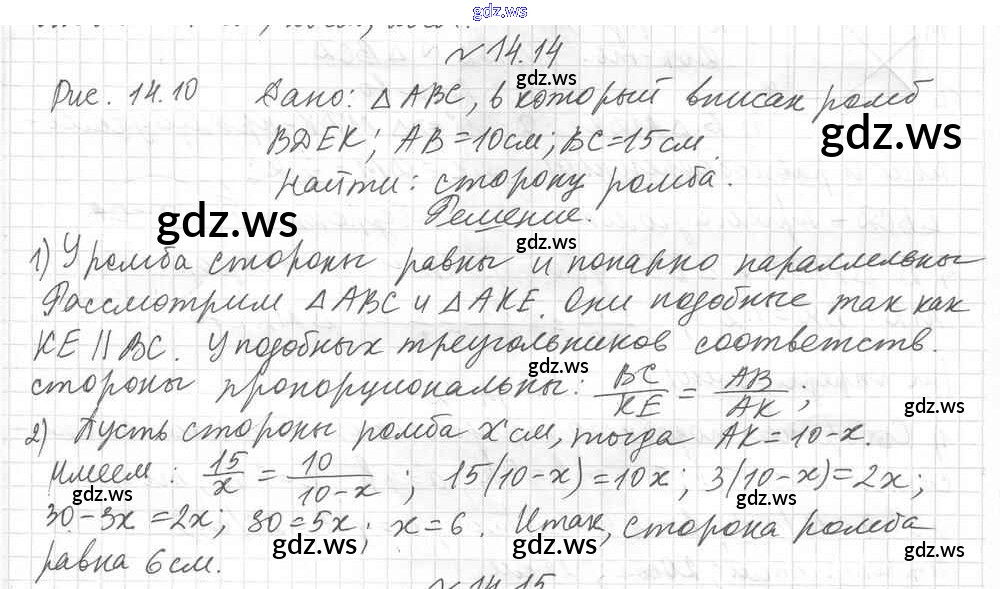 gdz.ws
№14.14
gdz.ws
Рис. 14.10 Дано: △ABC, в который вписан ромб
gdz.ws
BDEK; AB=10см; BC=15см.
Найти: сторону ромба.
gdz.ws
Решение.
gdz.ws
1) У ромба стороны равны и попарно параллельны
Рассмотрим △ABC и △AKE. Они подобные так как
KE || BC. У подобных треугольников соответств.
gdz.ws
стороны пропорциональны: BC/KE = AB/AK;
gdz.ws
2) Пусть стороны ромба x см, тогда AK=10-x.
Имеем: 15/x = 10/(10-x); 15(10-x)=10x; 3(10-x)=2x;
gdz.ws gdz.ws
30-3x=2x; 30=5x; x=6. Итак, сторона ромба
gdz.ws gdz.ws gdz.ws
равна 6см.
№14.15